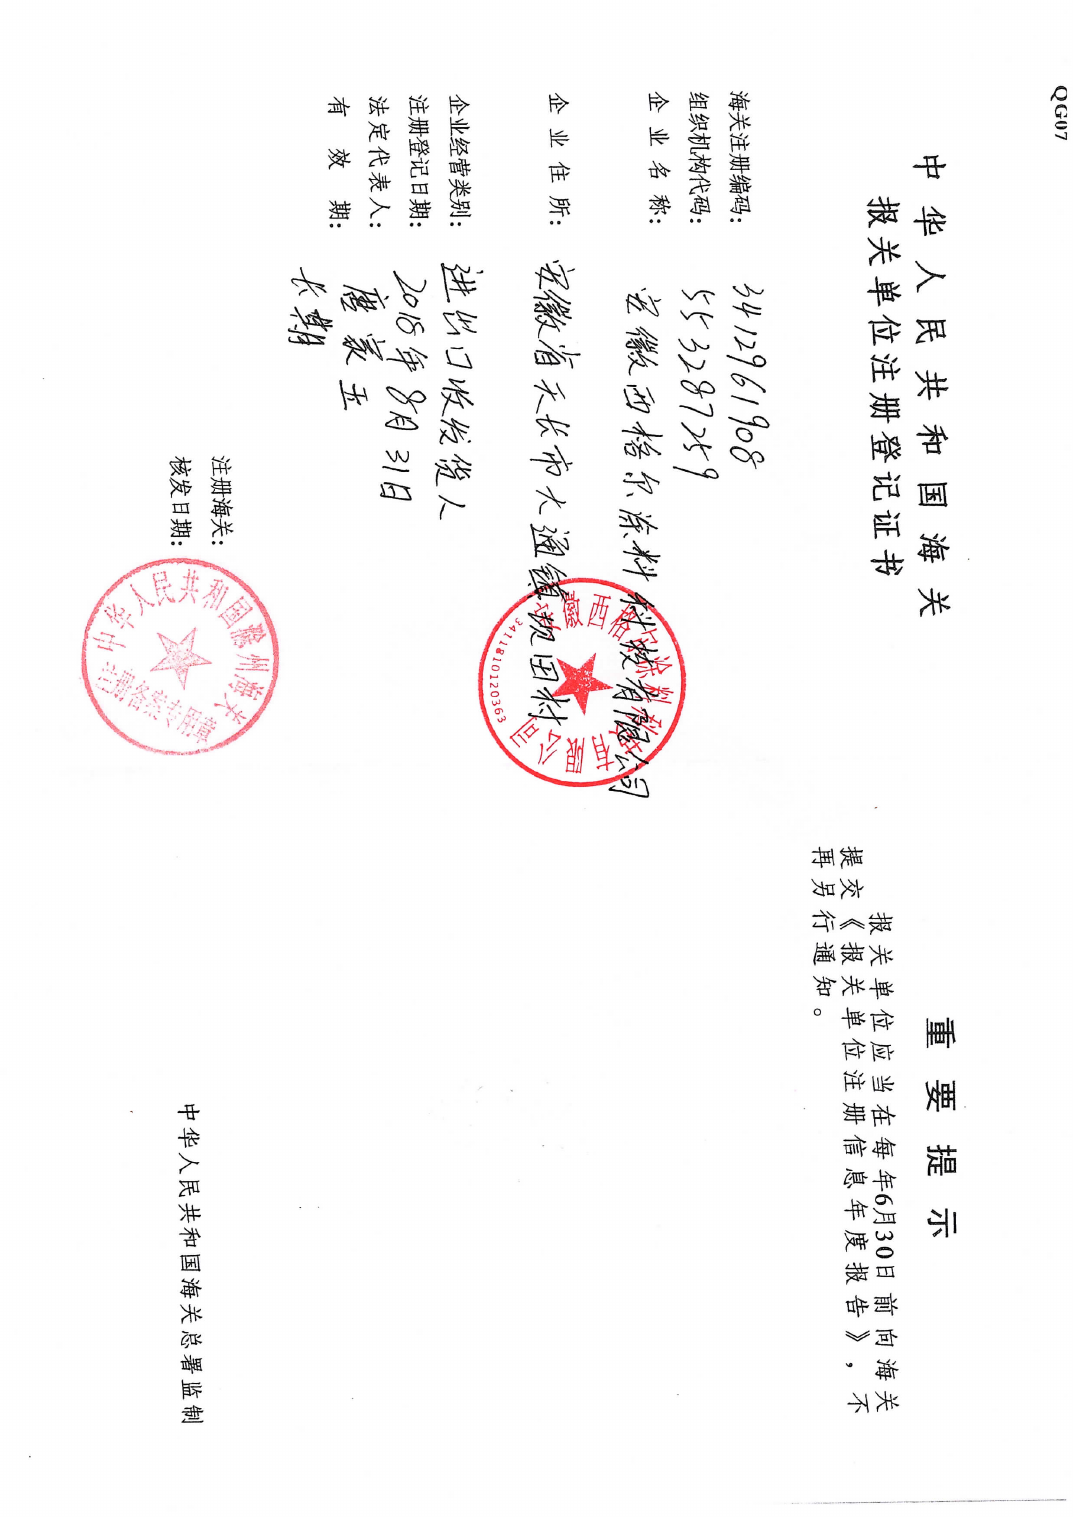 QG07
中华人民共和国海关
报关单位注册登记证书
海关注册编码: 3412961908
组织机构代码: 553287259
企业名称: 安徽西格尔涂料科技有限公司
企业住所: 安徽省天长市大通镇便田村
企业经营类别: 进出口收发货人
注册登记日期: 2018年8月31日
法定代表人: 唐家五
有效期: 长期
注册海关:
核发日期:
中华人民共和国滁州海关
注册备案专用章
安徽西格尔涂料科技有限公司
3411810120363
重要提示
报关单位应当在每年6月30日前向海关
提交《报关单位注册信息年度报告》,不
再另行通知。
中华人民共和国海关总署监制